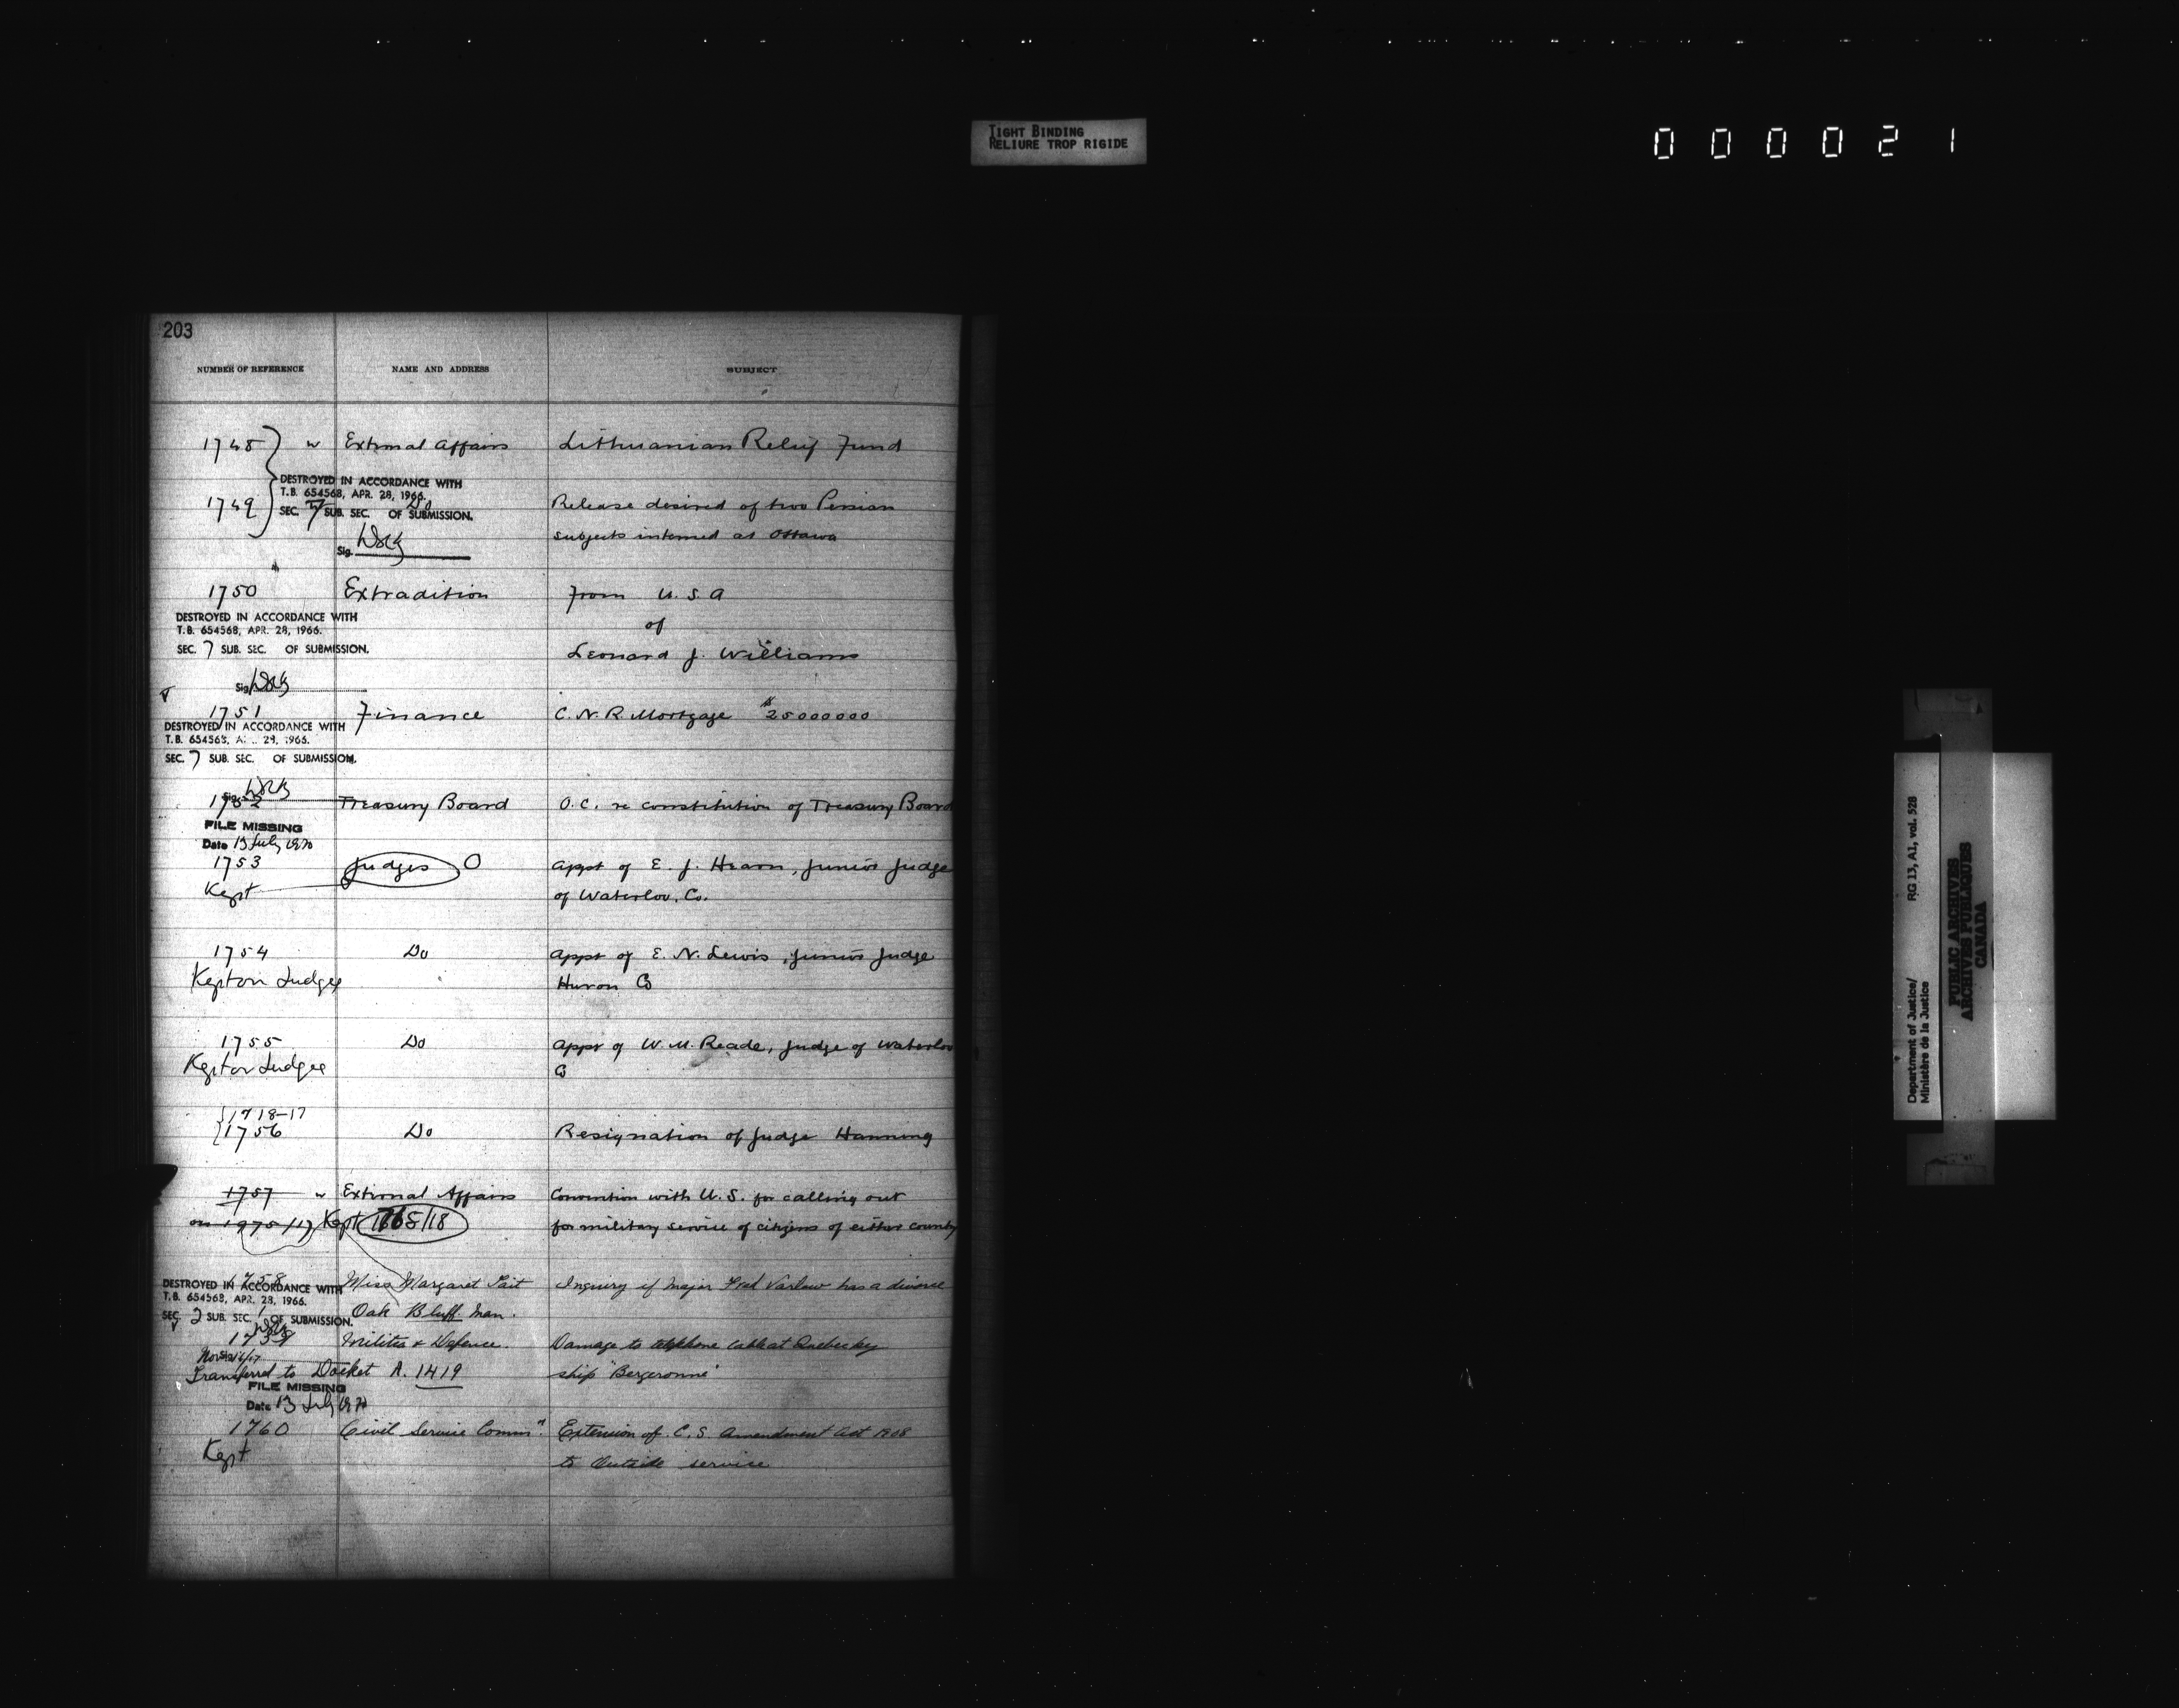 TIGHT BINDING
RELIURE TROP RIGIDE
000021
203
NUMBER OF REFERENCE NAME AND ADDRESS SUBJECT
1748 External Affairs Lithuanian Relief Fund
DESTROYED IN ACCORDANCE WITH
T.B. 654568, APR. 28, 1966.
1749 Do Release desired of two Persian
SEC. 7 SUB. SEC. OF SUBMISSION.
subjects interned at Ottawa
Sig.
1750 Extradition from U.S.A
DESTROYED IN ACCORDANCE WITH
T.B. 654568, APR. 28, 1966. of
SEC. 7 SUB. SEC. OF SUBMISSION. Leonard J. Williams
Sig.
1751 Finance C.N.R. Mortgage $25000000
DESTROYED IN ACCORDANCE WITH
T.B. 654568, A 29, 1966.
SEC. 7 SUB. SEC. OF SUBMISSION.
Sig.
1752 Treasury Board O.C. re constitution of Treasury Board
FILE MISSING
Date 13 July 1970
1753 Judges O Appt of E. J. Hearn, Junior Judge
Kept of Waterloo. Co.
1754 Do Appt of E. N. Lewis, Junior Judge
Kept on Judges Huron Co
1755 Do Appt of W. M. Reade, Judge of Waterloo
Kept on Judges Co
1718-17
1756 Do Resignation of Judge Hanning
1757 External Affairs Convention with U.S. for calling out
on 1975/17 Kept 1765/18 for military service of citizens of either country
1758 Miss Margaret Tait Inquiry if Major Fred Varlow has a divorce
DESTROYED IN ACCORDANCE WITH
T.B. 654568, APR. 28, 1966. Oak Bluff Man.
SEC. 2 SUB. SEC. 1 OF SUBMISSION.
1759 Militia & Defence. Damage to telephone cable at Quebec by
Transferred to Docket A. 1419 ship "Bergeronne"
FILE MISSING
Date 13 July 1970
1760 Civil Service Commn. Extension of C.S. Amendment Act 1908
Kept to Outside service
Department of Justice/ RG 13, A1, vol. 528
Ministère de la Justice
PUBLIC ARCHIVES
ARCHIVES PUBLIQUES
CANADA